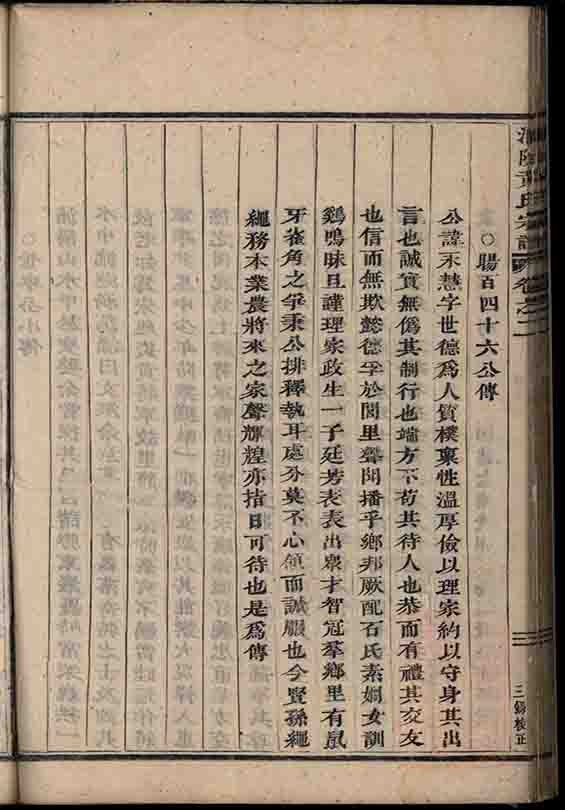 黃氏宗譜 卷之二
○賜百四十六公傳
公諱丕慧字世德爲人質樸稟性溫厚儉以理家約以守身其出
言也誠實無僞其制行也端方不苟其待人也恭而有禮其交友
也信而無欺懿德孚於閭里聲聞播乎鄉邦厥配石氏素嫻女訓
鷄鳴昧旦謹理家政生一子廷芳表表出衆才智冠羣鄉里有鼠
牙雀角之爭秉公排釋執耳處分莫不心領而誠服也今賢孫繩
繩務本業農將來之家聲輝煌亦指日可待也是爲傳
三錫校正